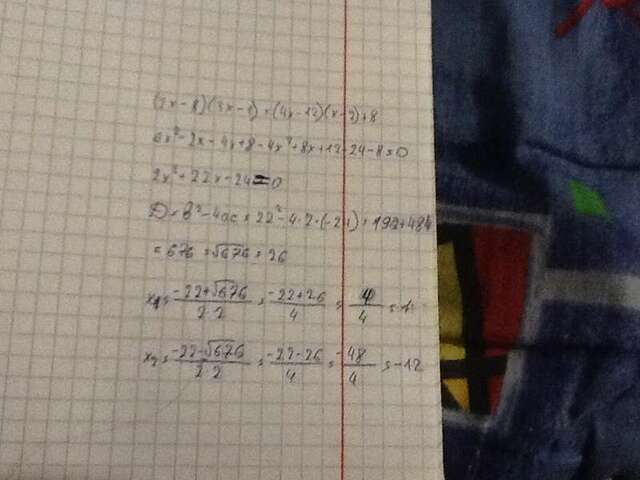 (2x-8)(3x-1)=(4x-12)(x-2)+8
6x²-2x-4x+8-4x²+8x+12-24-8=0
2x²+22x-24=0
D=b²-4ac=22²-4·2·(-24)=192+484
=676=√676=26
x₁=(-22+√676)/(2·2)=(-22+26)/4=4/4=1
x₂=(-22-√676)/(2·2)=(-22-26)/4=-48/4=-12